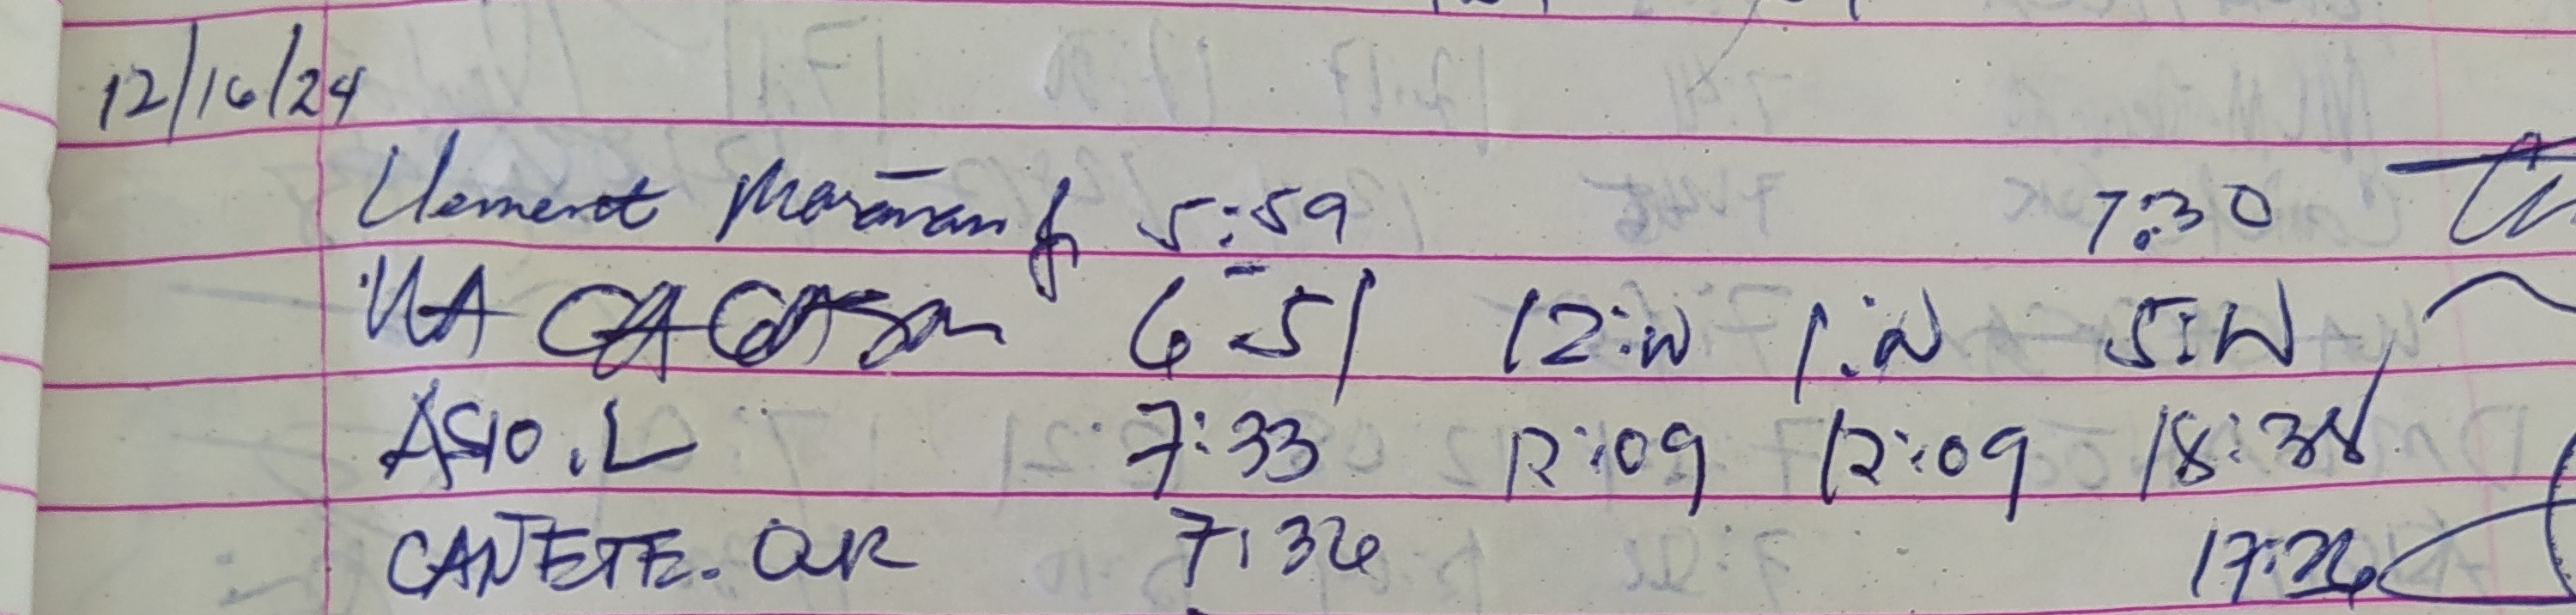 12/16/24
Clement 5:59 7:30
6:51 12:00 1:00 5:00
ASIO.L 7:33 12:09 12:09 18:38
CANETE. QR 7:36 17:26